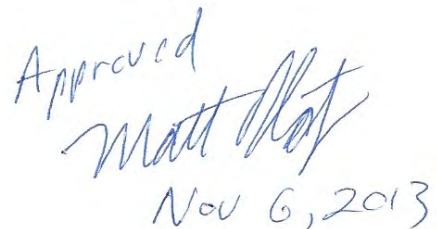 Approved
Matt
Nov 6, 2013